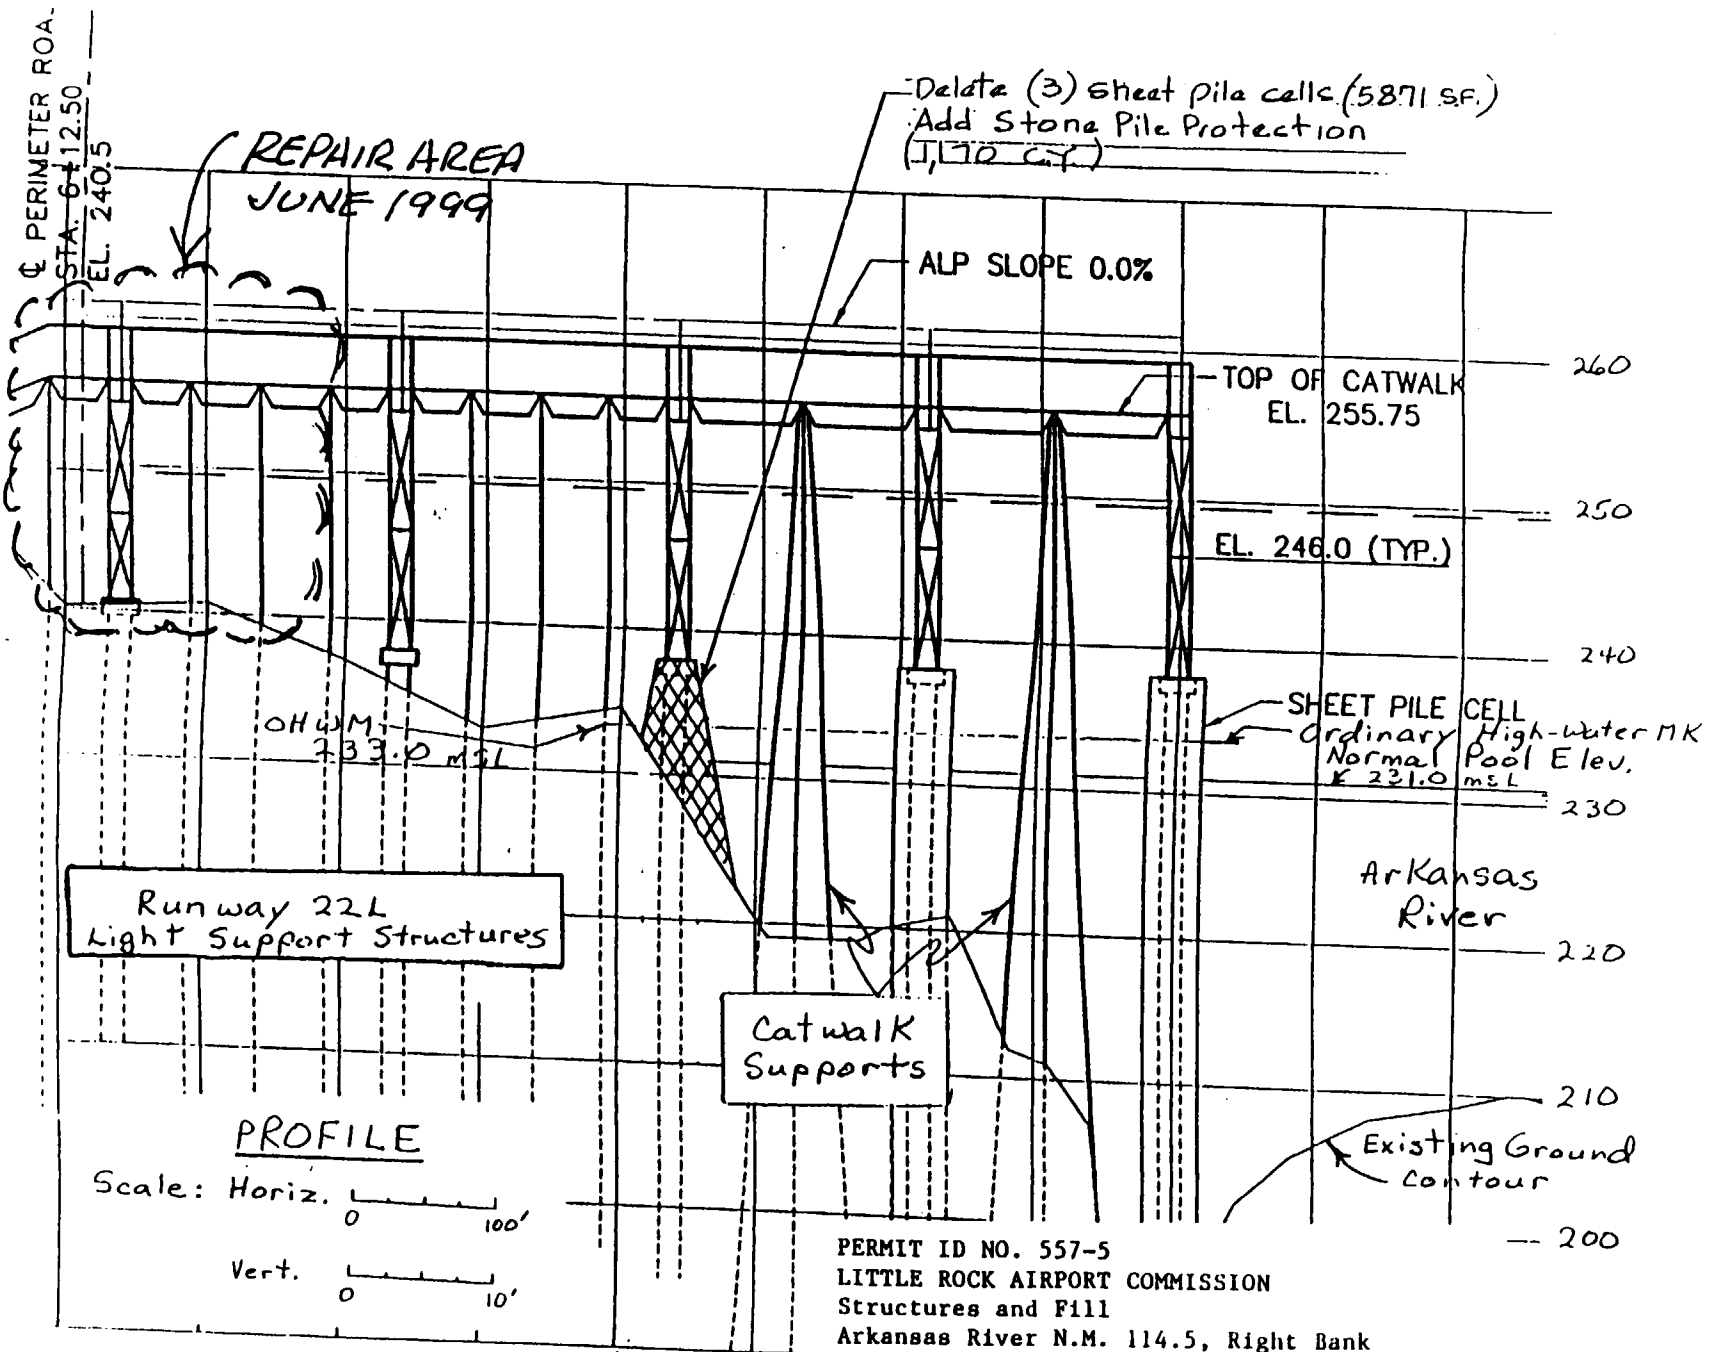 ℄ PERIMETER ROA
STA. 6+12.50
EL. 240.5
REPAIR AREA
JUNE 1999
Delete (3) sheet pile cells (5871 S.F.)
Add Stone Pile Protection
(1,170 C.Y.)
ALP SLOPE 0.0%
260
TOP OF CATWALK
EL. 255.75
250
EL. 246.0 (TYP.)
240
SHEET PILE CELL
Ordinary High-water MK
Normal Pool Elev.
231.0 msl
OHWM
233.0 msl
230
Runway 22L
Light Support Structures
Arkansas
River
220
Catwalk
Supports
210
PROFILE
Existing Ground
Contour
Scale: Horiz.
0 100'
200
Vert.
0 10'
PERMIT ID NO. 557-5
LITTLE ROCK AIRPORT COMMISSION
Structures and Fill
Arkansas River N.M. 114.5, Right Bank